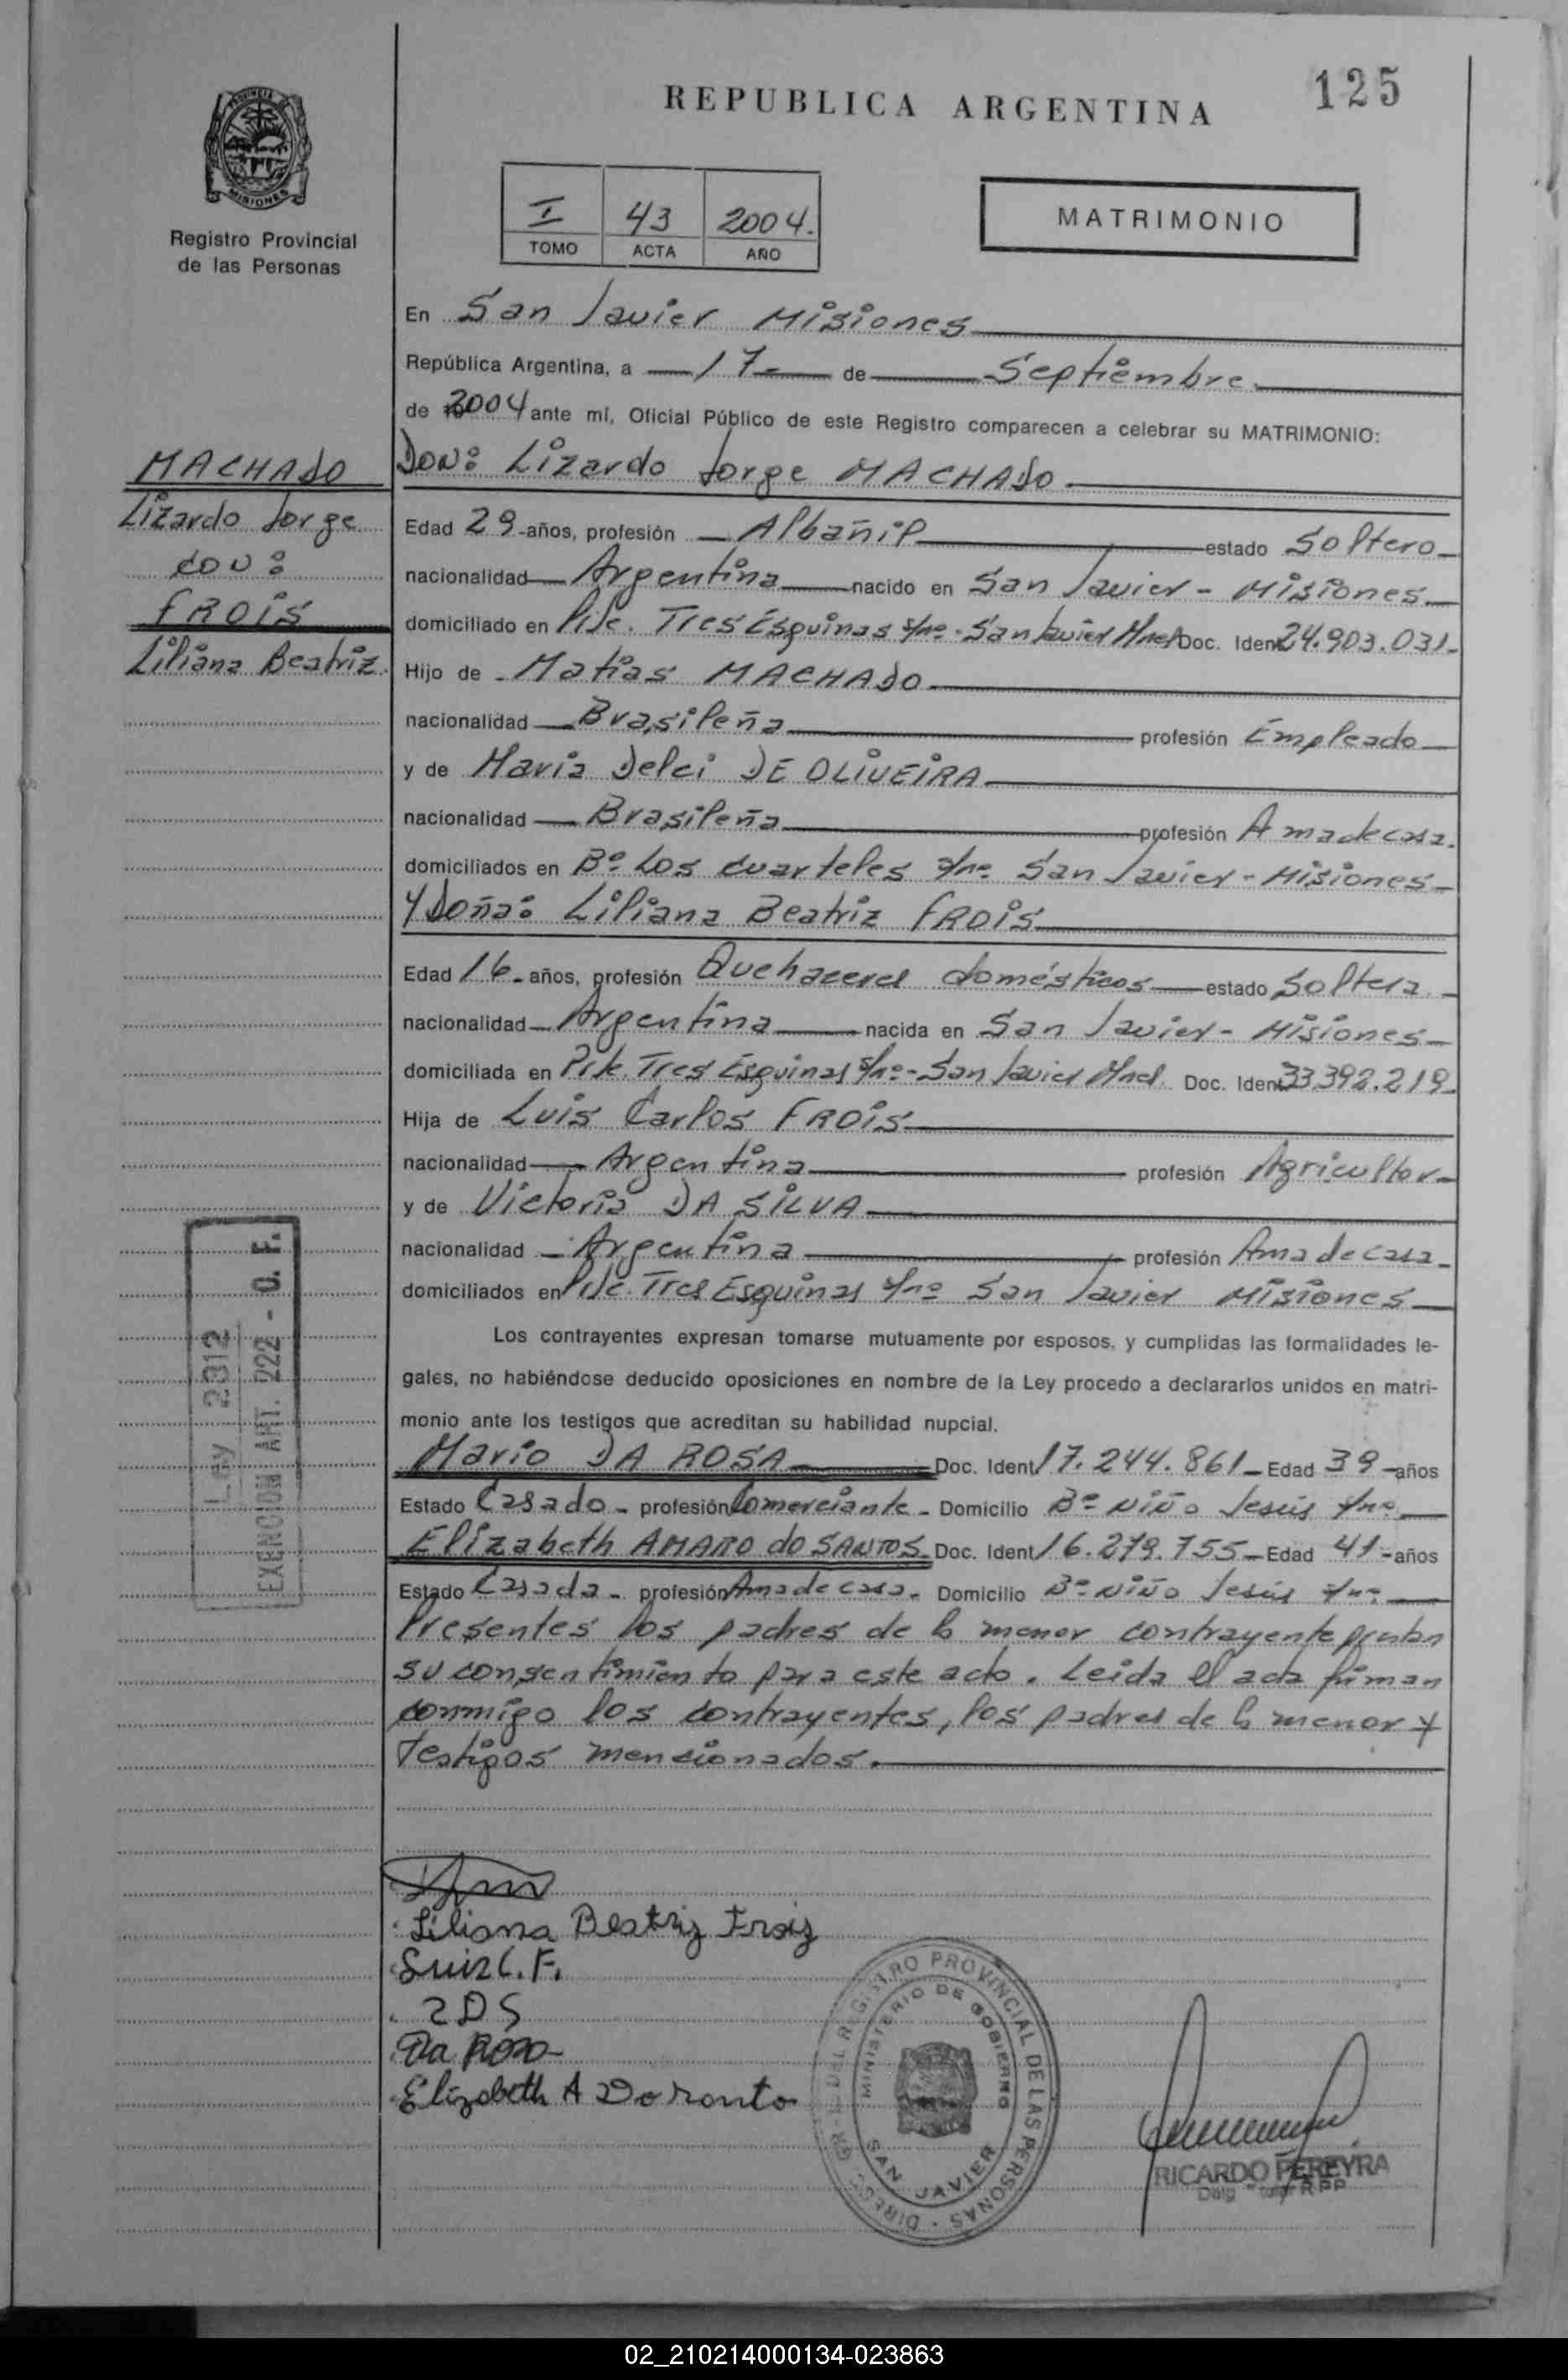 125
REPUBLICA ARGENTINA
PROVINCIA DE MISIONES
Registro Provincial
de las Personas
I 43 2004.
TOMO ACTA AÑO
MATRIMONIO
En San Javier Misiones
República Argentina, a 17 de Septiembre
de 2004 ante mí, Oficial Público de este Registro comparecen a celebrar su MATRIMONIO:
MACHADO
Lizardo Jorge
con:
FROIS
Liliana Beatriz
Don: Lizardo Jorge MACHADO
Edad 29 años, profesión Albañil estado Soltero
nacionalidad Argentina nacido en San Javier - Misiones
domiciliado en Pje. Tres Esquinas s/nº - San Javier Mnes Doc. Ident 24.903.031
Hijo de Matias MACHADO
nacionalidad Brasileña profesión Empleado
y de Maria Delci DE OLIVEIRA
nacionalidad Brasileña profesión Ama de casa.
domiciliados en Bº Los cuarteles s/nº San Javier - Misiones
Y Doña: Liliana Beatriz FROIS
Edad 16 años, profesión Quehaceres domésticos estado Soltera
nacionalidad Argentina nacida en San Javier - Misiones
domiciliada en Pje. Tres Esquinas s/nº - San Javier Mnes Doc. Ident 33.392.219
Hija de Luis Carlos FROIS
nacionalidad Argentina profesión Agricultor
y de Victoria DA SILVA
nacionalidad Argentina profesión Ama de casa
domiciliados en Pje. Tres Esquinas s/nº San Javier Misiones
Los contrayentes expresan tomarse mutuamente por esposos, y cumplidas las formalidades le-
gales, no habiéndose deducido oposiciones en nombre de la Ley procedo a declararlos unidos en matri-
monio ante los testigos que acreditan su habilidad nupcial.
Mario DA ROSA Doc. Ident 17.244.861 Edad 39 años
Estado Casado profesión Comerciante Domicilio Bº Niño Jesús s/nº
Elizabeth AMARO do SANTOS Doc. Ident 16.279.755 Edad 41 años
Estado Casada profesión Ama de casa Domicilio Bº Niño Jesús s/nº
Presentes los padres de la menor contrayente prestan
su consentimiento para este acto. Leida el acta firman
conmigo los contrayentes, los padres de la menor y
Testigos mencionados.
Ley 2812
EXENCION ART. 222 - O. F.
Liliana Beatriz Frois
Luiz C. F.
2DS
Da Roza
Elizabeth A
REGISTRO PROVINCIAL DE LAS PERSONAS
MINISTERIO DE GOBIERNO
SAN JAVIER
RICARDO PEREYRA
02_210214000134-023863